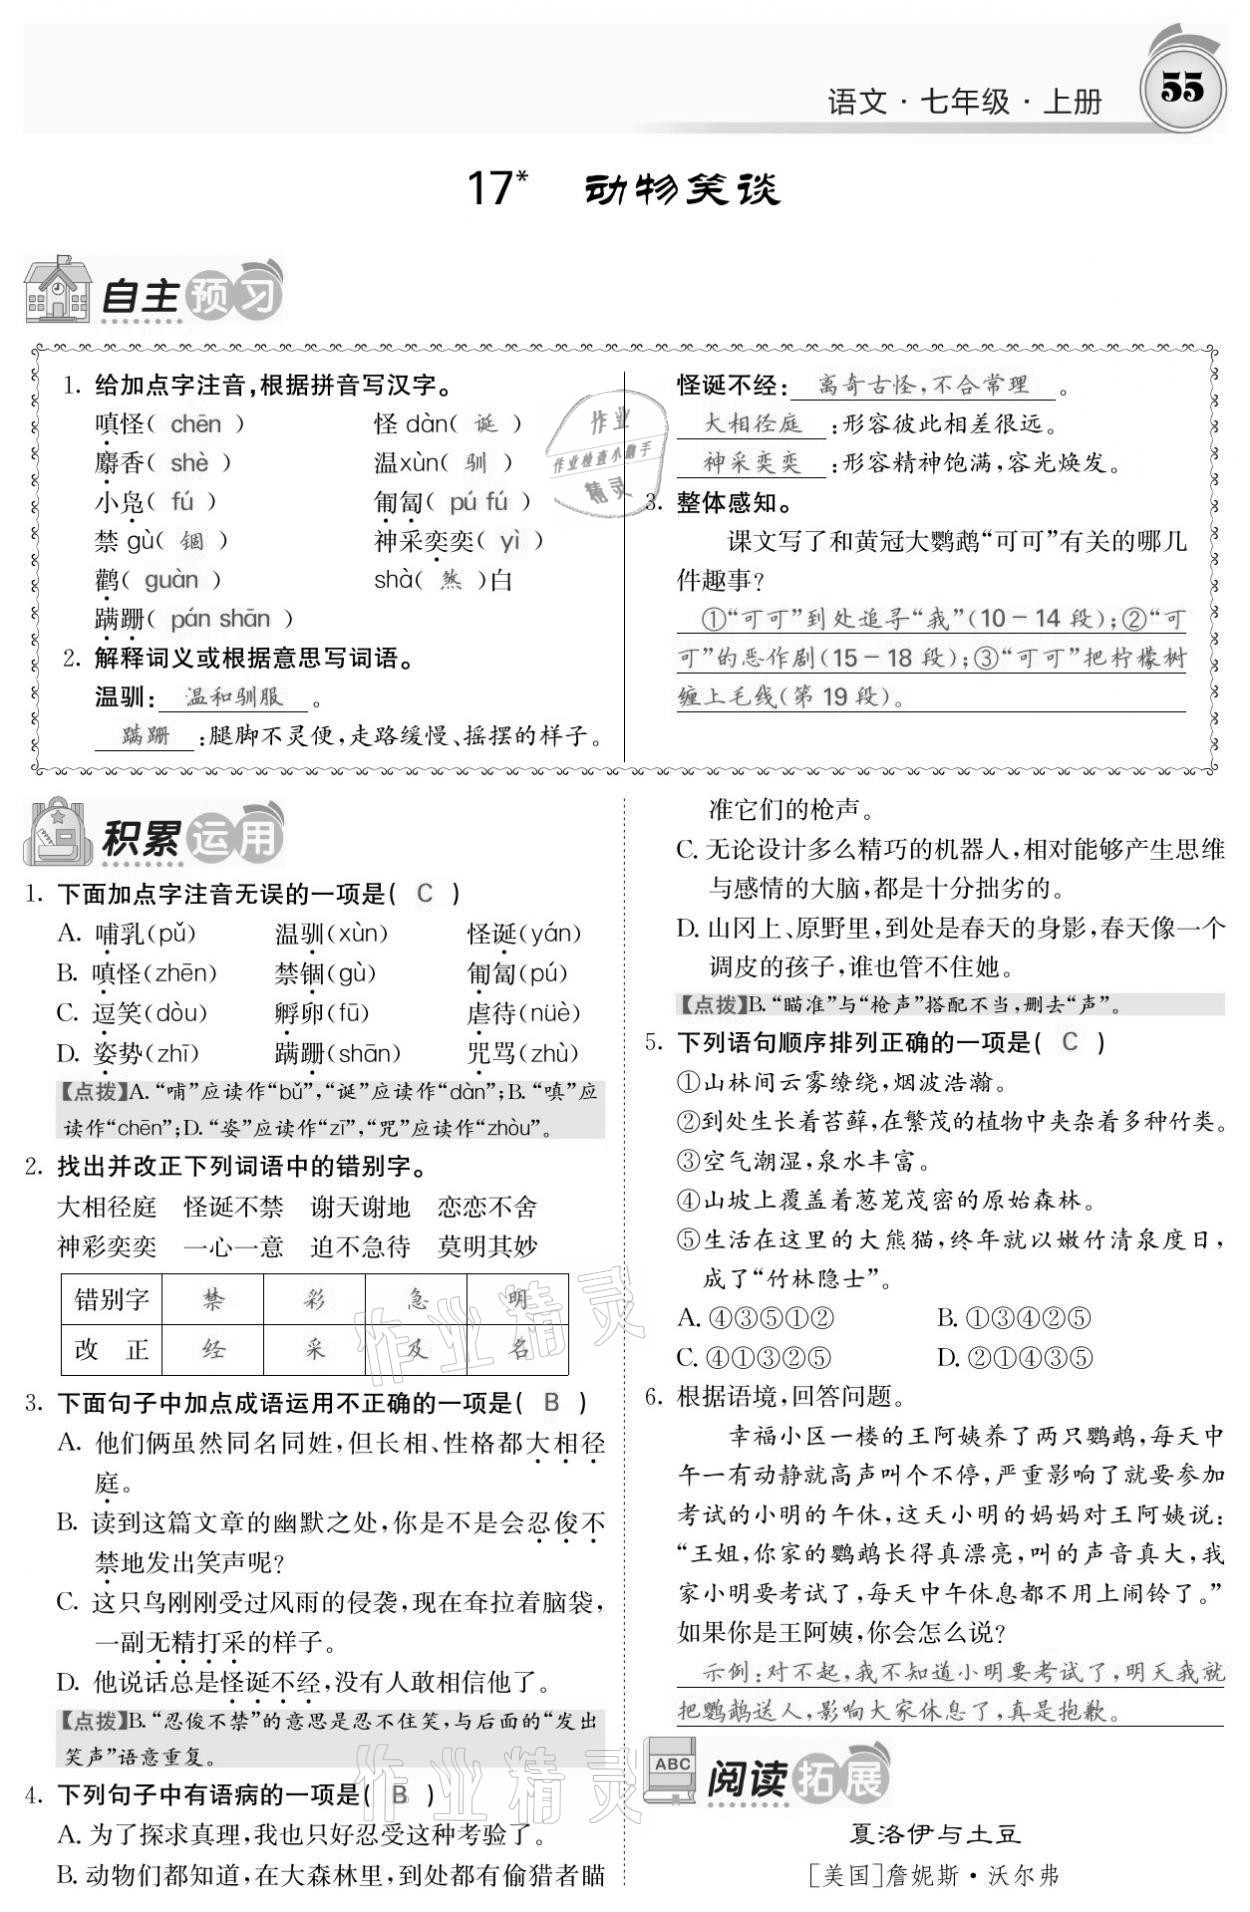 语文·七年级·上册
55
17* 动物笑谈
自主预习
1. 给加点字注音,根据拼音写汉字。
嗔怪( chēn ) 怪 dàn( 诞 )
麝香( shè ) 温xùn( 驯 )
小凫( fú ) 匍匐( pú fú )
禁 gù( 锢 ) 神采奕奕( yì )
鹳( guàn ) shà( 煞 )白
蹒跚( pán shān )
2. 解释词义或根据意思写词语。
温驯: 温和驯服 。
蹒跚 :腿脚不灵便,走路缓慢、摇摆的样子。
怪诞不经: 离奇古怪,不合常理 。
大相径庭 :形容彼此相差很远。
神采奕奕 :形容精神饱满,容光焕发。
3. 整体感知。
课文写了和黄冠大鹦鹉“可可”有关的哪几
件趣事?
①“可可”到处追寻“我”(10-14 段);②“可
可”的恶作剧(15-18 段);③“可可”把柠檬树
缠上毛线(第 19 段)。
作业
作业检查小助手
精灵
积累运用
1. 下面加点字注音无误的一项是( C )
A. 哺乳(pǔ) 温驯(xùn) 怪诞(yán)
B. 嗔怪(zhēn) 禁锢(gù) 匍匐(pú)
C. 逗笑(dòu) 孵卵(fū) 虐待(nüè)
D. 姿势(zhī) 蹒跚(shān) 咒骂(zhù)
【点拨】A.“哺”应读作“bǔ”,“诞”应读作“dàn”;B.“嗔”应
读作“chēn”;D.“姿”应读作“zī”,“咒”应读作“zhòu”。
2. 找出并改正下列词语中的错别字。
大相径庭 怪诞不禁 谢天谢地 恋恋不舍
神彩奕奕 一心一意 迫不急待 莫明其妙
错别字 禁 彩 急 明
改 正 经 采 及 名
3. 下面句子中加点成语运用不正确的一项是( B )
A. 他们俩虽然同名同姓,但长相、性格都大相径
庭。
B. 读到这篇文章的幽默之处,你是不是会忍俊不
禁地发出笑声呢?
C. 这只鸟刚刚受过风雨的侵袭,现在耷拉着脑袋,
一副无精打采的样子。
D. 他说话总是怪诞不经,没有人敢相信他了。
【点拨】B.“忍俊不禁”的意思是忍不住笑,与后面的“发出
笑声”语意重复。
4. 下列句子中有语病的一项是( B )
A. 为了探求真理,我也只好忍受这种考验了。
B. 动物们都知道,在大森林里,到处都有偷猎者瞄
准它们的枪声。
C. 无论设计多么精巧的机器人,相对能够产生思维
与感情的大脑,都是十分拙劣的。
D. 山冈上、原野里,到处是春天的身影,春天像一个
调皮的孩子,谁也管不住她。
【点拨】B.“瞄准”与“枪声”搭配不当,删去“声”。
5. 下列语句顺序排列正确的一项是( C )
①山林间云雾缭绕,烟波浩瀚。
②到处生长着苔藓,在繁茂的植物中夹杂着多种竹类。
③空气潮湿,泉水丰富。
④山坡上覆盖着葱茏茂密的原始森林。
⑤生活在这里的大熊猫,终年就以嫩竹清泉度日,
成了“竹林隐士”。
A. ④③⑤①② B. ①③④②⑤
C. ④①③②⑤ D. ②①④③⑤
6. 根据语境,回答问题。
幸福小区一楼的王阿姨养了两只鹦鹉,每天中
午一有动静就高声叫个不停,严重影响了就要参加
考试的小明的午休,这天小明的妈妈对王阿姨说:
“王姐,你家的鹦鹉长得真漂亮,叫的声音真大,我
家小明要考试了,每天中午休息都不用上闹铃了。”
如果你是王阿姨,你会怎么说?
示例:对不起,我不知道小明要考试了,明天我就
把鹦鹉送人,影响大家休息了,真是抱歉。
ABC
阅读拓展
夏洛伊与土豆
[美国]詹妮斯·沃尔弗
作业精灵
作业精灵